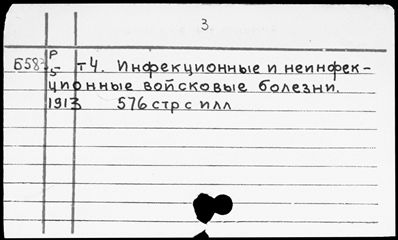 3.
Р
Б583 5 т4. Инфекционные и неинфек-
ционные войсковые болезни.
1913 576 стр с илл